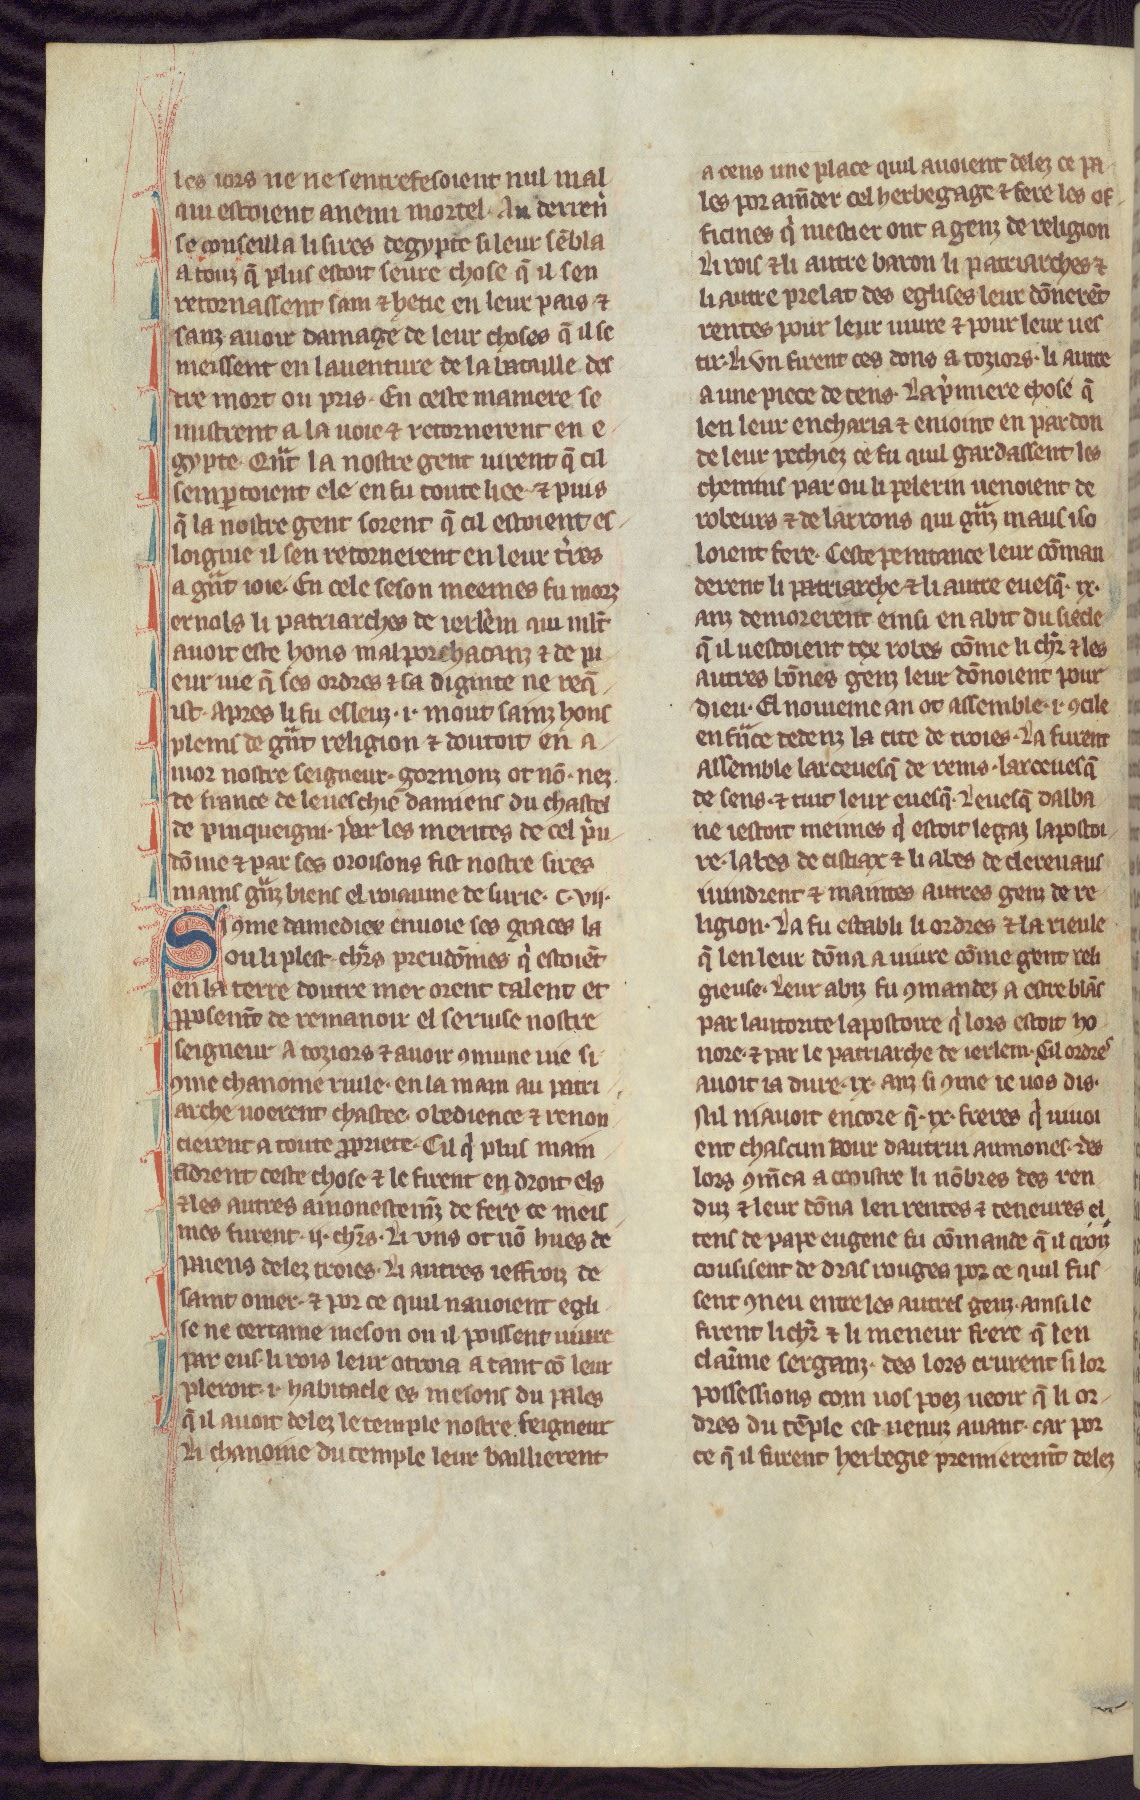 les iors ne ne sentrefesoient nul mal
qui estoient anemi mortel. Au derreñ
se conseilla li sires degypte si leur sēbla
a touz q̄ plus estoit seure chose q̄ il sen
retornassent sain ⁊ hetie en leur pais ⁊
sanz avoir damage de leur choses q̄ il se
meissent en laventure de la bataille des
tre mort ou pris. En ceste maniere se
mistrent a la uoie ⁊ retornerent en e
gypte. Qn̄t la nostre gent uirent q̄ cil
semp̱toient ele en fu toute liee. ⁊ puis
q̄ la nostre gent sorent q̄ cil estoient es
loignie il sen retornerent en leur t̄res
a gn̄t ioie. En cele seson meemes fu morz
ernols li patriarches de ierlēm qui ml̄t
auoit este hons mal porchacanz ⁊ de pi
eur uie q̄ ses ordres ⁊ sa dignite ne req̄
ist. Apres li fu esleuz .i. mout sainz hons
pleins de gn̄t religion ⁊ doutoit en a
mor nostre seigneur. gormonz ot nō. nez
de france de leueschie damiens du chastel
de pinqueigni. Par les merites de cel p̄u
dōme ⁊ par ses oroisons fist nostre sires
mains gn̄z biens el roiaume de surie. C. vii.
Si ꝯme damediex enuoie ses graces la
ou li plest. ch̄rs preudōmes q̄ estoiēt
en la terre doutre mer orent talent et
ꝓposem̄t de remanoir el seruise nostre
seigneur A toziors ⁊ auoir ꝯmune uie si
ꝯme chanoine riule. en la main au patri
arche uoerent chastee. obedience ⁊ renon
cierent a toute ꝓpriete. Cil q̄ plus main
tidrent ceste chose ⁊ le firent en droit els
⁊ les autres amonestem̄z de fere ce meis
mes furent .ij. ch̄rs. Li vns ot nō hues de
paiens delez troies. Li autres ieffroiz de
saint omer. ⁊ por ce quil nauoient egli
se ne certaine meson ou il poissent uiure
par eus. li rois leur otroia a tant cō leur
pleroit .i. habitacle es mesons du pales
q̄ il auoit delez le temple nostre seigneur
Li chanoine du temple leur baillierent
a cens une place quil auoient delez ce pa
les por am̄der cel herbegage ⁊ fere les of
ficines q̄ mestier ont a genz de religion
Li rois ⁊ li autre baron li patriarches ⁊
li autre prelat des eglises leur dōnerēt
rentes pour leur uiure ⁊ pour leur ues
tir. Li vn firent ces dons a toziors. li autre
a une piece de tens. La p̄miere chose q̄
len leur encharia ⁊ enioint en pardon
de leur pechiez ce fu quil gardassent les
chemins par ou li pelerin uenoient de
robeurs ⁊ de larrons qui gn̄z maus i so
loient fere. Ceste penitance leur cōman
derent li patriarche ⁊ li autre euesq̄. ix.
anz demorerent einsi en abit du siecle
q̄ il uestoient tex robes cōme li ch̄r ⁊ les
autres bōnes genz leur dōnoient pour
dieu. El noiueme an ot assemble .i. ꝯcile
en fn̄ce dedenz la cite de troies. La furent
assemble larceuesq̄ de reins. larceuesq̄
de sens. ⁊ tuit leur euesq̄. Leuesq̄ dalba
ne iestoit meimes q̄ estoit legaz lapostoi
re. labes de cistiax ⁊ li abes de clereuaus
iuindrent ⁊ maintes autres genz de re
ligion. La fu establi li ordres ⁊ la rieule
q̄ len leur dōna a uiure cōme gent reli
gieuse. Leur abiz fu ꝯmandez a estre blās
par lautorite lapostoire q̄ lors estoit ho
nore. ⁊ par le patriarche de ierlem. Cil ordres
auoit ia dure .ix. anz si ꝯme ie uos dis.
Sil niauoit encore q̄ .ix. freres q̄ uiuoi
ent chascun iour dautrui aumones. des
lors ꝯm̄ca a croistre li nōbres des ren
duz ⁊ leur dōna len rentes ⁊ teneures el
tens de pape eugene fu cōmande q̄ il croiz
cousisent de dras rouges por ce quil fus
sent ꝯneu entre les autres genz. ainsi le
firent li ch̄r ⁊ li meneur frere q̄ len
claime serganz. des lors crurent si lor
possessions com uos poez ueoir q̄ li or
dres du tēple est uenuz auant. car por
ce q̄ il furent herbegie premierem̄t delez